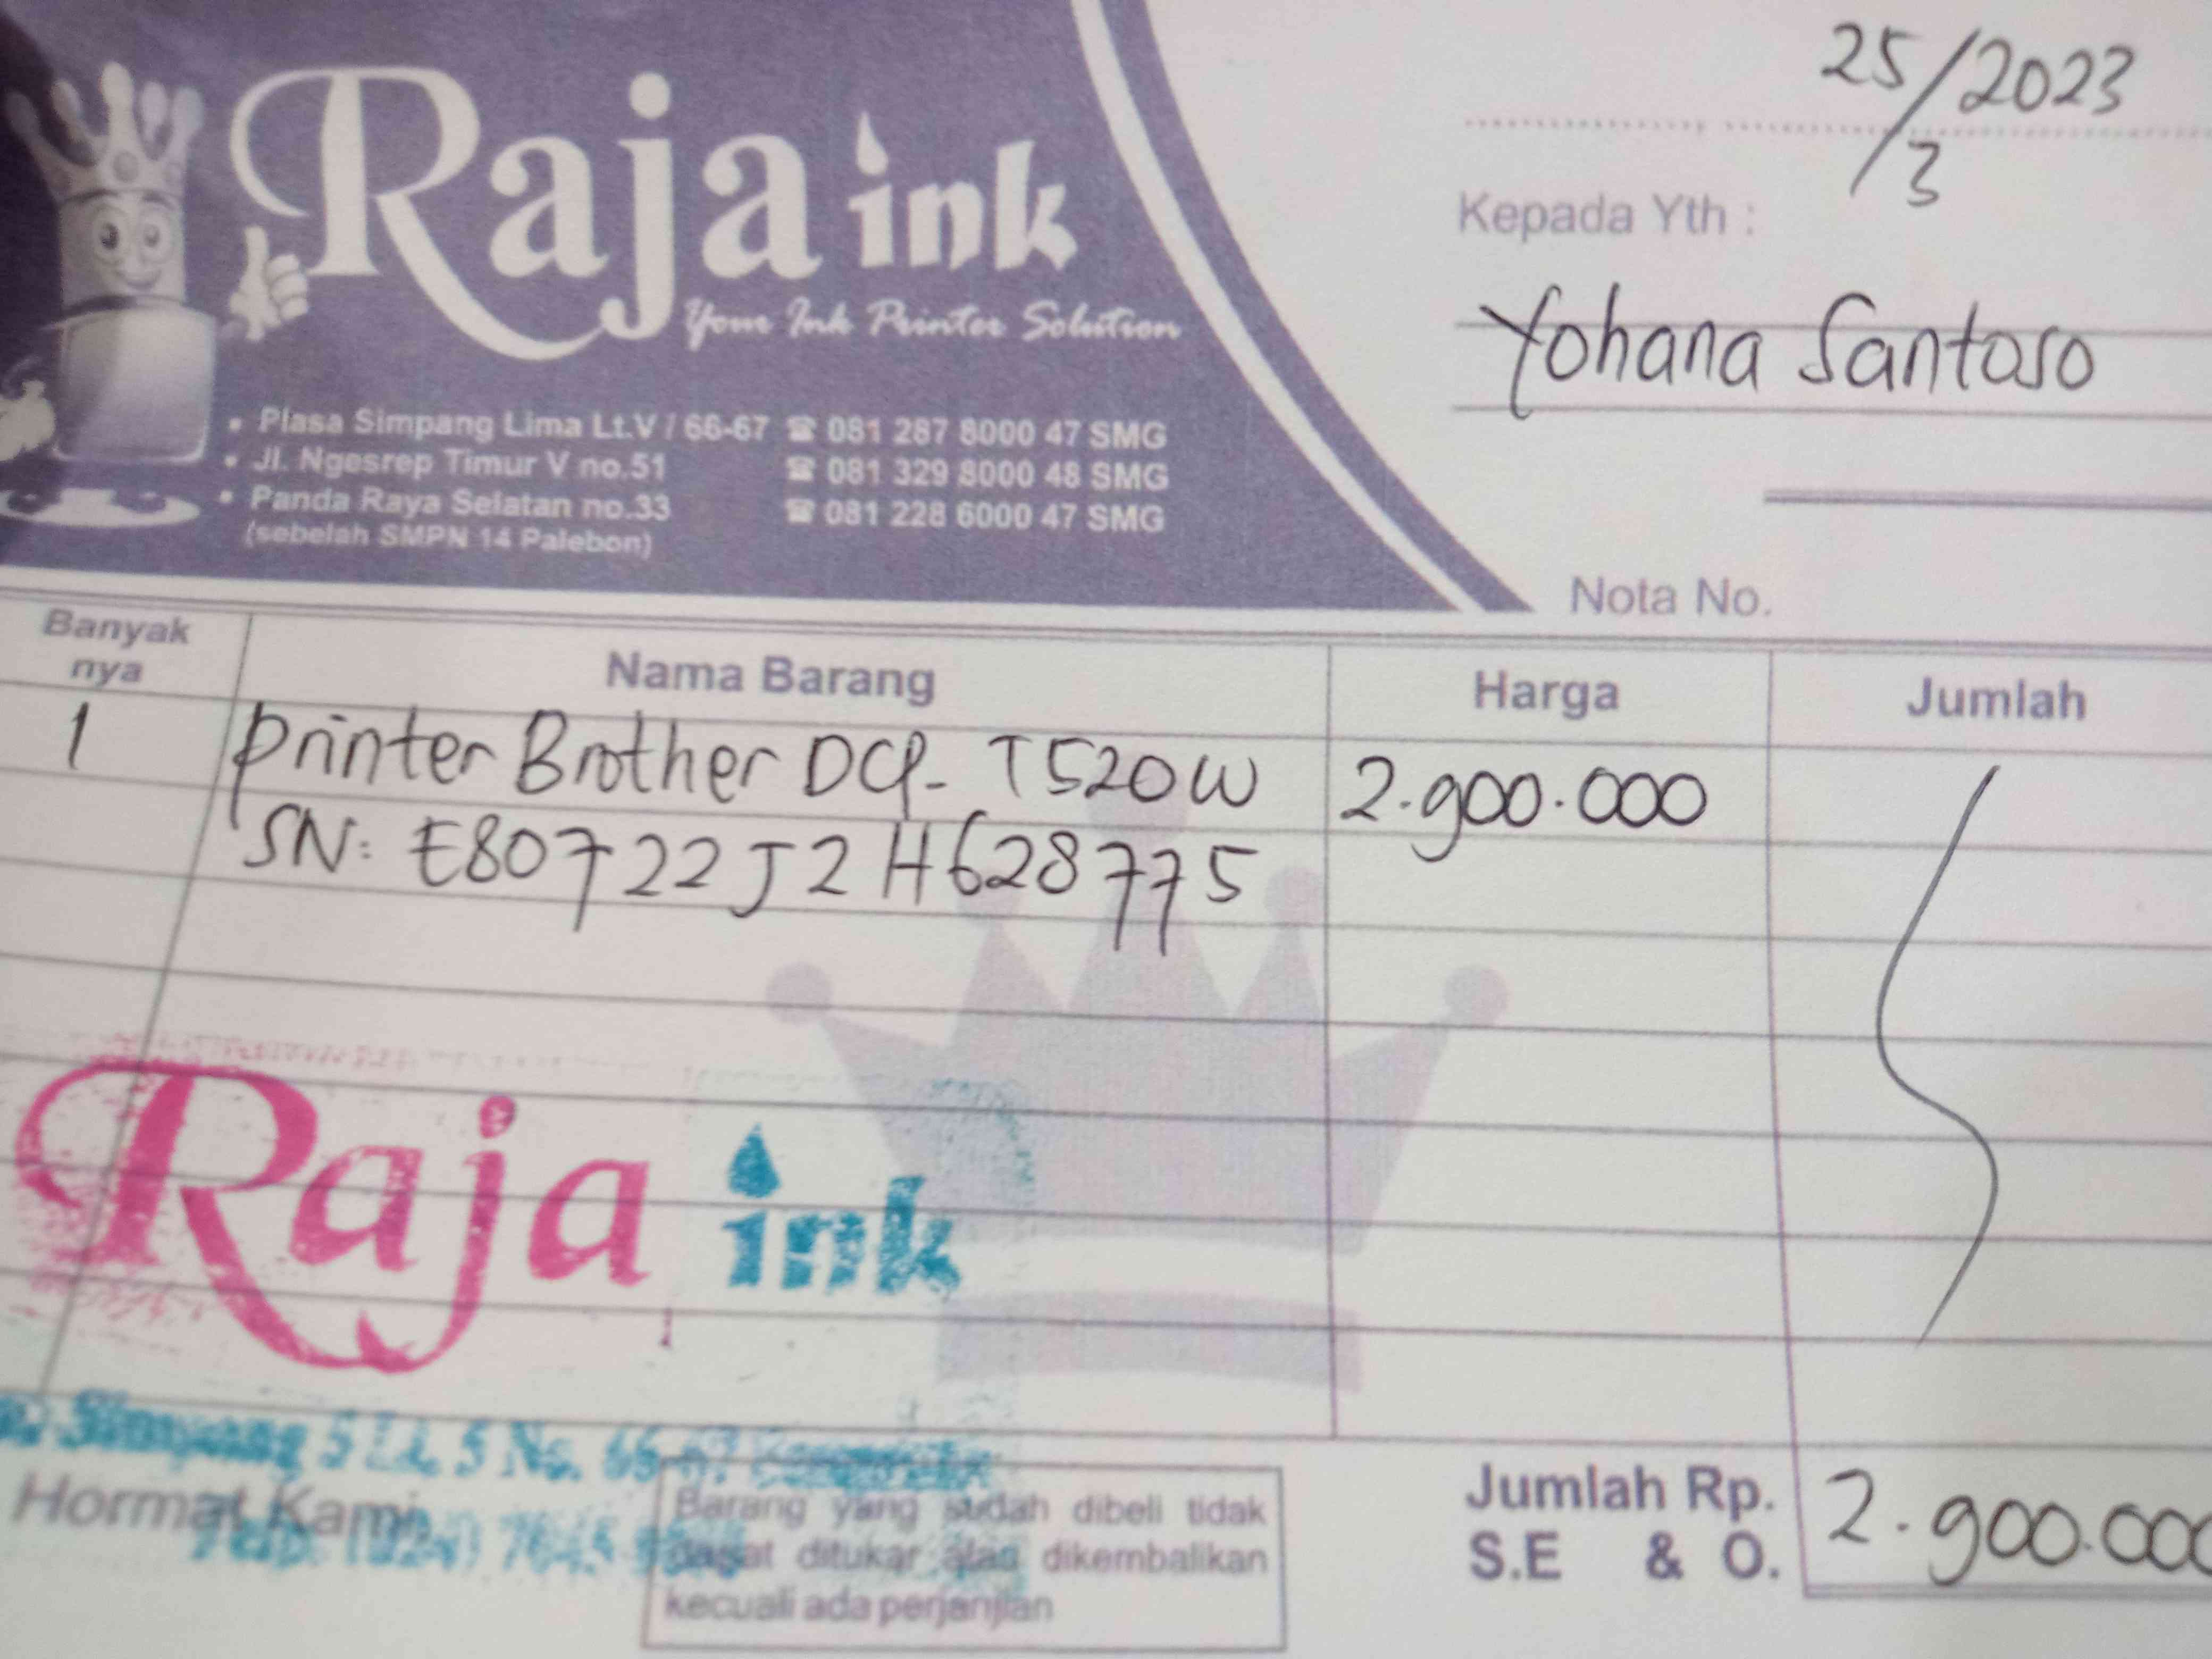 Raja ink
Your Ink Printer Solution
• Plasa Simpang Lima Lt.V / 66-67 ☎ 081 287 8000 47 SMG
• Jl. Ngesrep Timur V no.51 ☎ 081 329 8000 48 SMG
• Panda Raya Selatan no.33 ☎ 081 228 6000 47 SMG
(sebelah SMPN 14 Palebon)
25/3/2023
Kepada Yth :
Yohana Santoso
Nota No.
Banyak nya Nama Barang Harga Jumlah
1 Printer Brother DCP- T520W 2.900.000
SN: E80722J2H628775
Raja ink
Simpang 5 Lt. 5 No. 66-67
Hormat Kami,
Telp. (024) 7645
Barang yang sudah dibeli tidak
dapat ditukar atau dikembalikan
kecuali ada perjanjian
Jumlah Rp. 2.900.000
S.E & O.